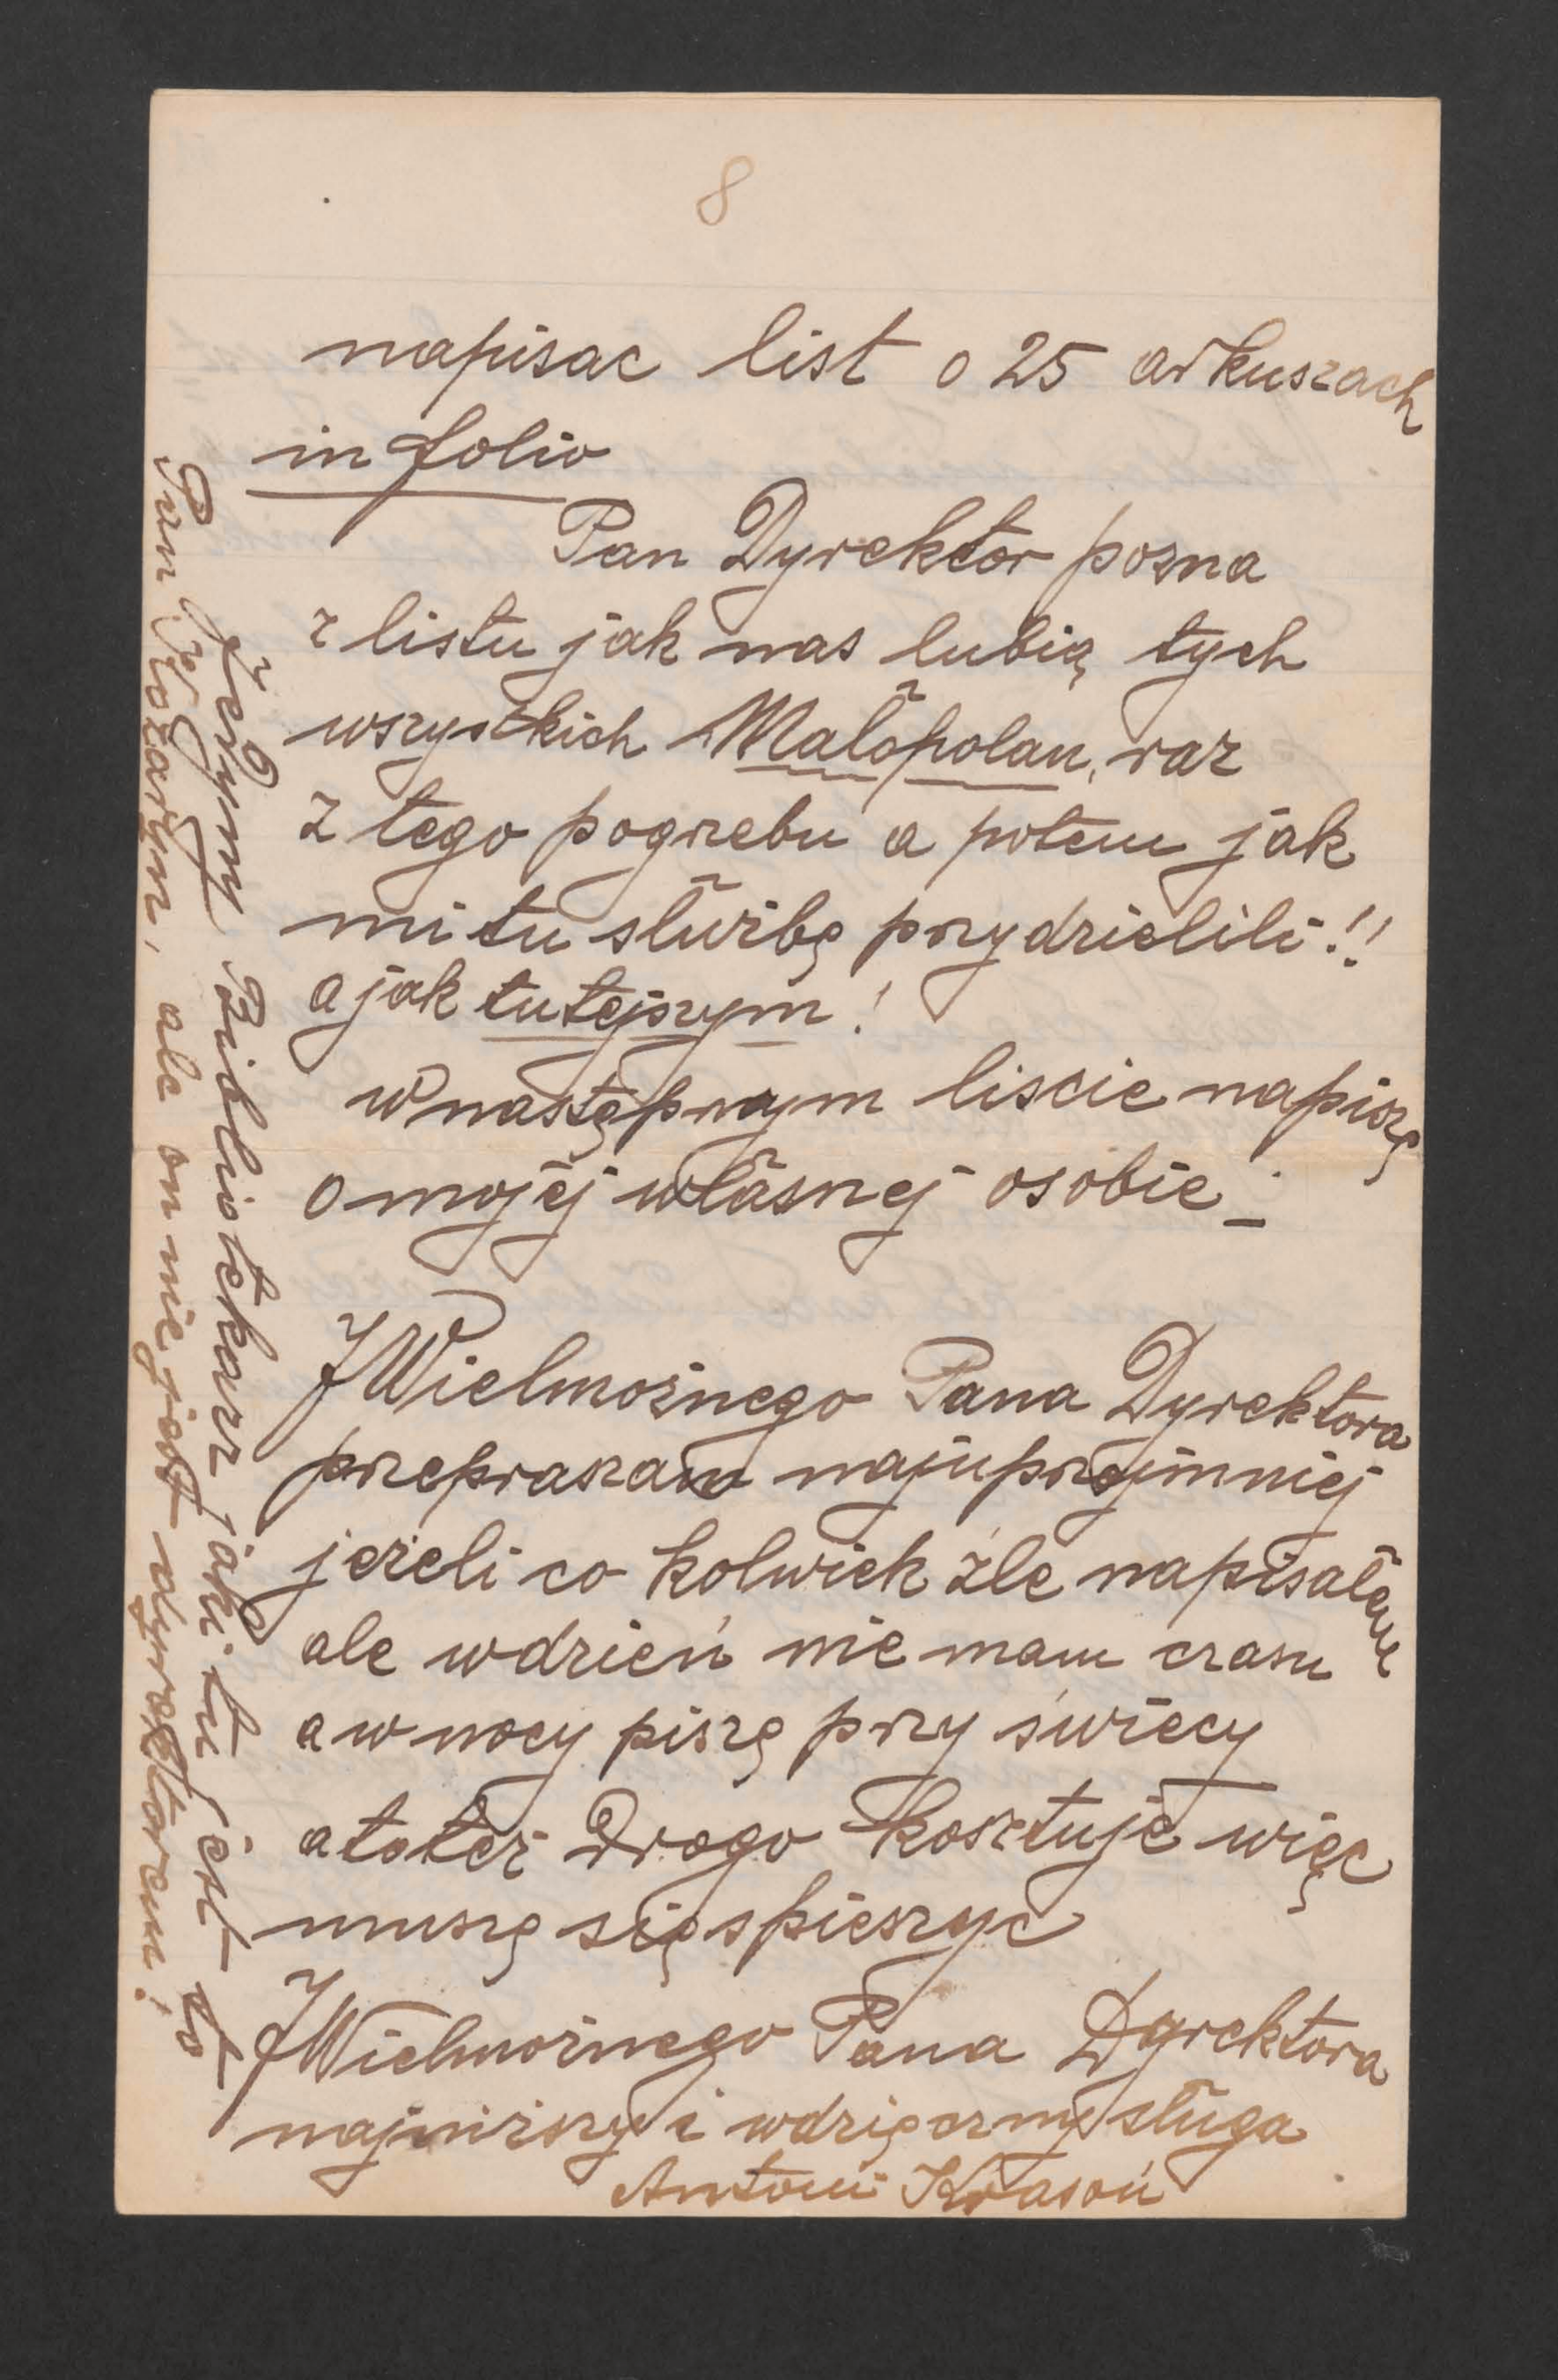 8
napisac list o 25 arkuszach
in folio
Pan Dyrektor pozna
z listu jak nas lubią tych
wszystkich Małopolan, raz
z tego pogrzebu a potem jak
mi tu służbę przydzielili!!
a jak tutejszym!
w następnym liscie napiszę
o mojej własnej osobie
JWielmożnego Pana Dyrektora
przepraszam najuprzejmniej
jeżeli co kolwiek źle napisałem
ale w dzień nie mam czasu
a w nocy piszę przy świecy
a to też Drogo kosztuje więc
muszę się spieszyc
JWielmożnego Pana Dyrektora
najniższy i wdzięczny sługa
Antoni Krasoń
Jedyny Bibliotekarz jaki tu jest to
Pan, ale on nie jest dyrektorem!